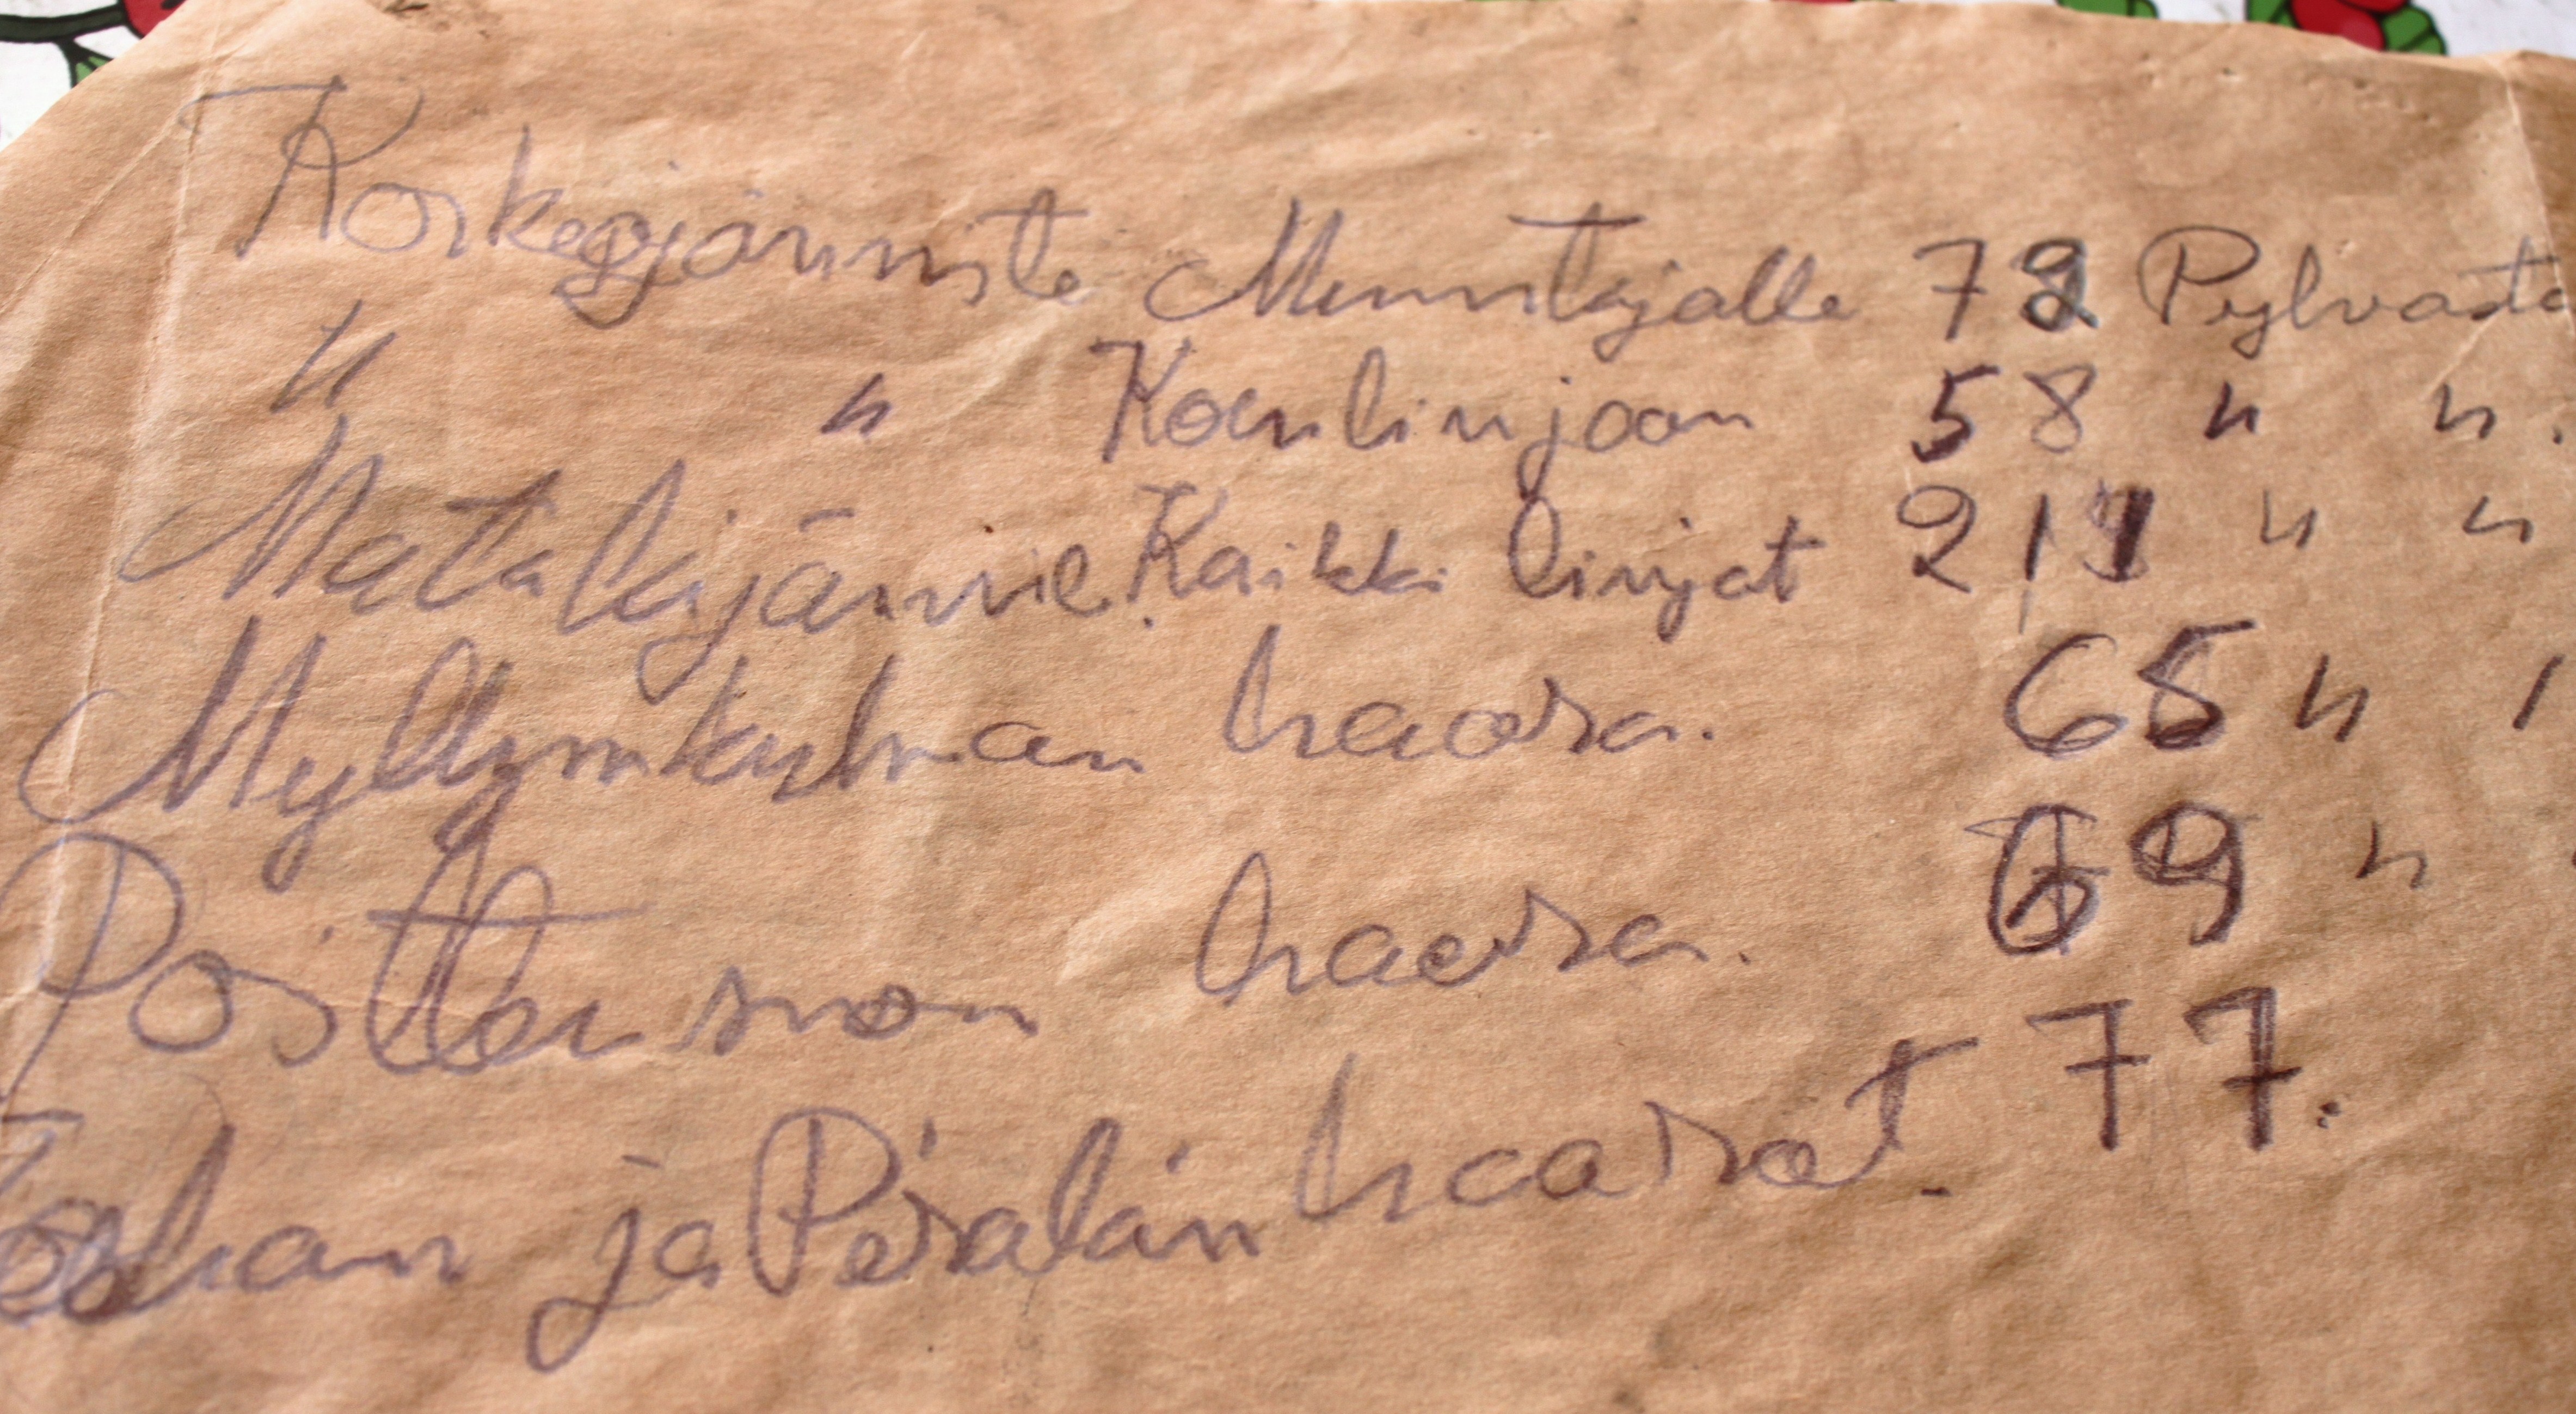 Korkeajännite Muuntajalle 72 Pylvästä
" " Koeulinjaan 58 " ".
Matalajännite. Kaikki linjat 211 " "
Myllymkulman haara. 65 " "
haara. 69 "
ja Perälän haarat. 77.